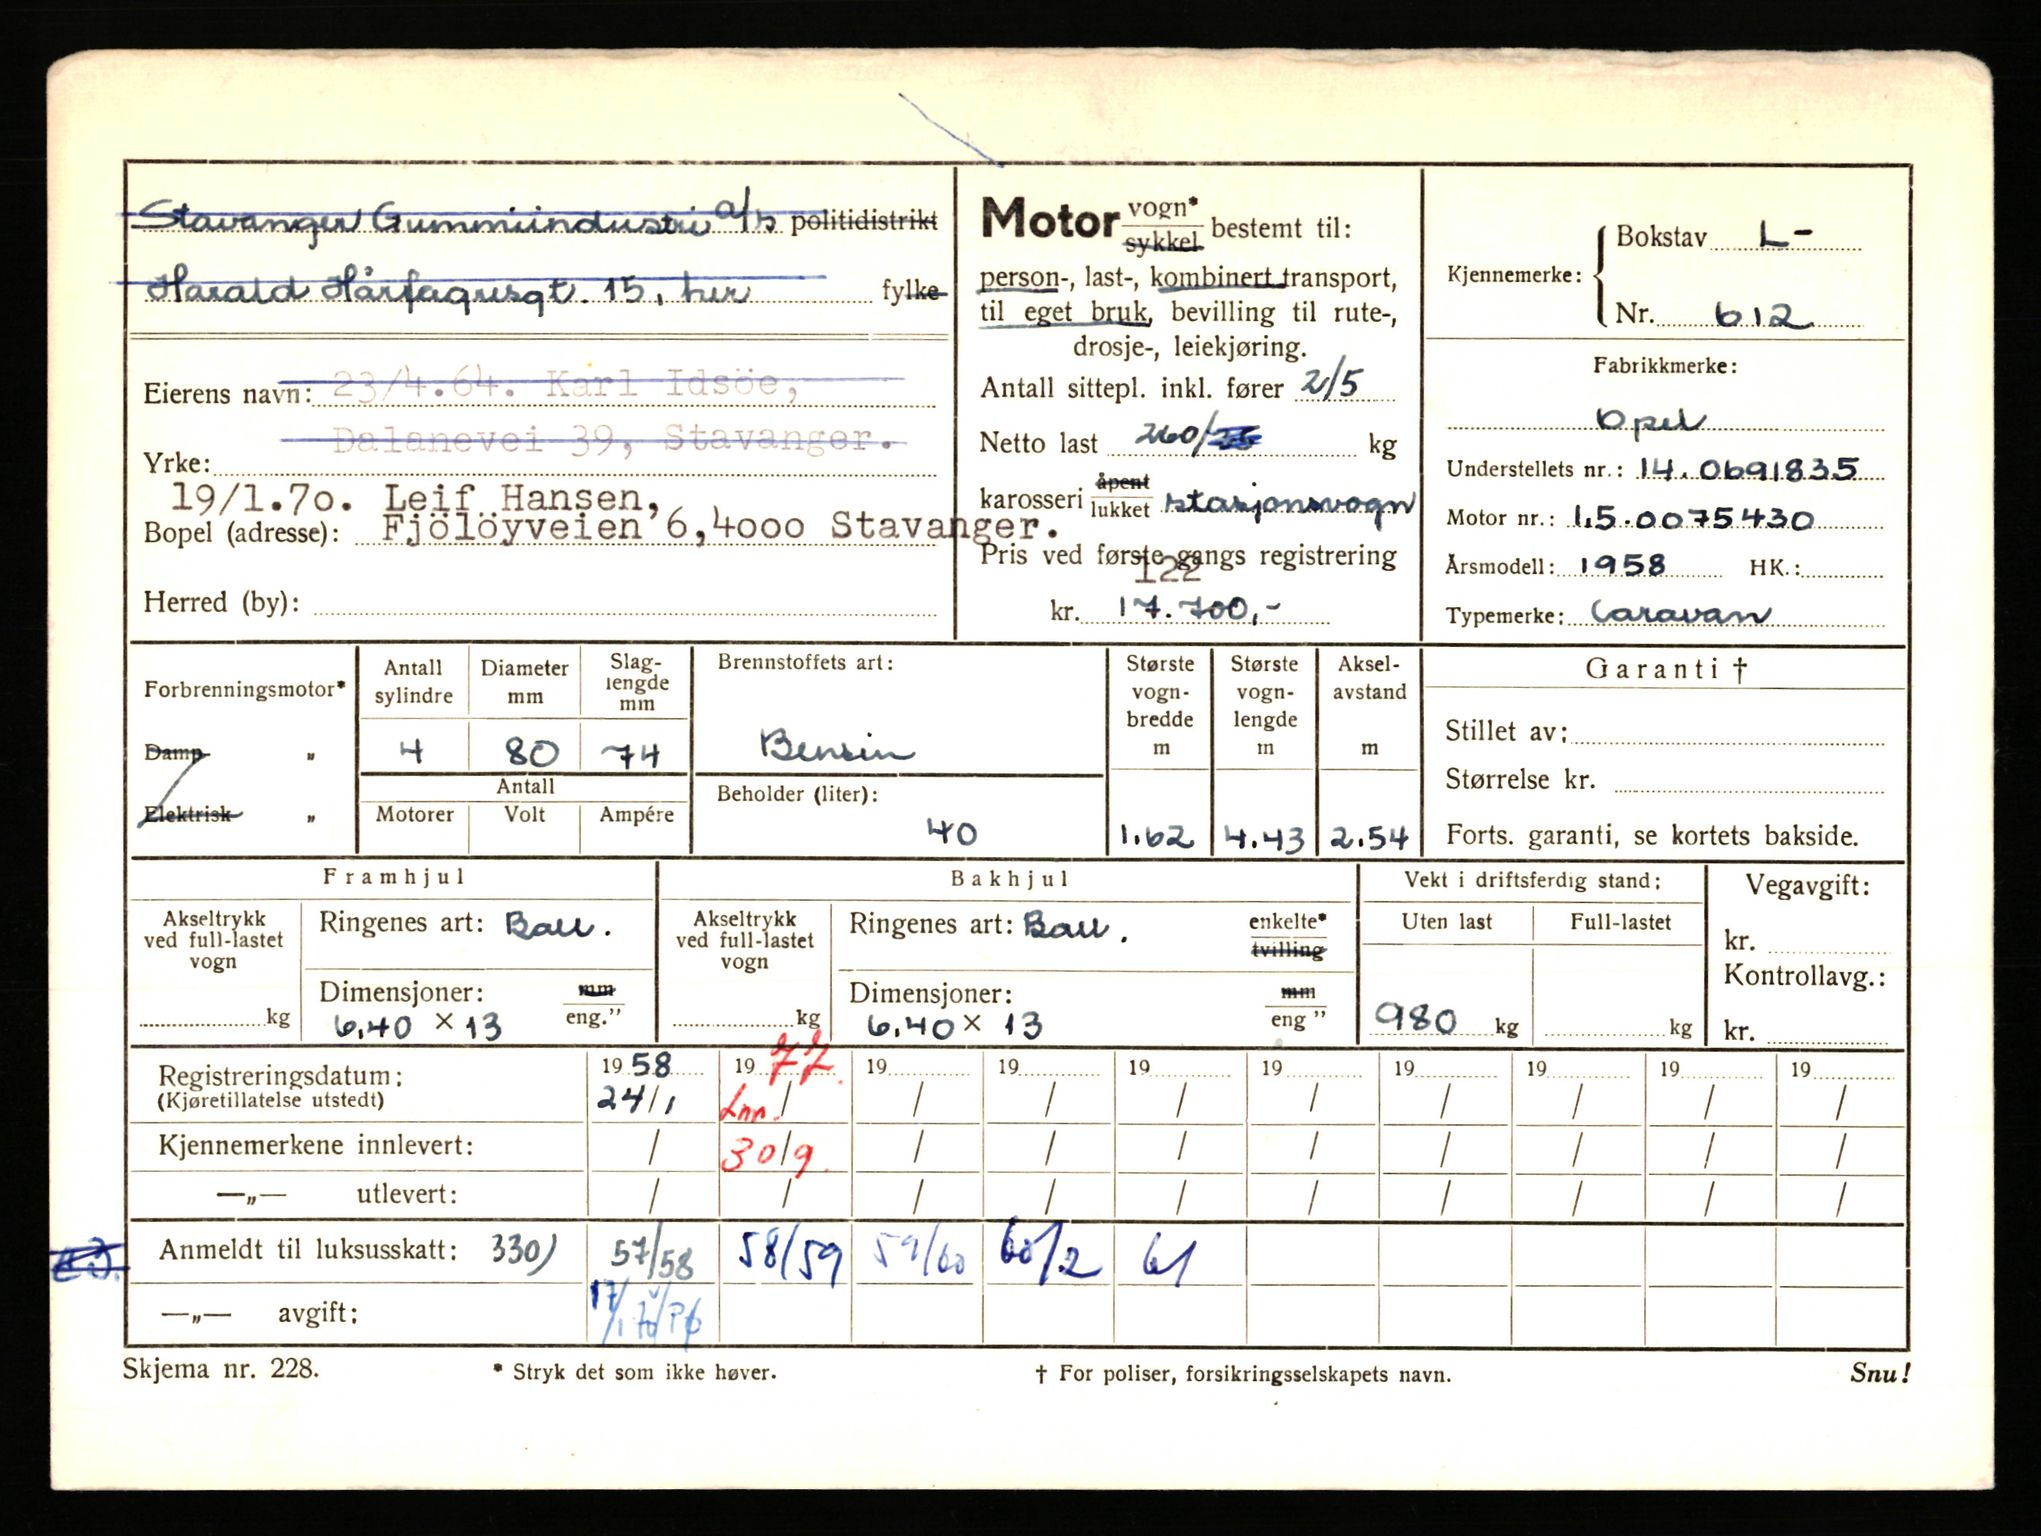 Stavanger Gummiindustri a/s politidistrikt
Harald Hårfagresgt. 15, her fylke
Eierens navn: 23/4.64. Karl Idsöe,
Dalanevei 39, Stavanger.
Yrke:
19/1.7o. Leif Hansen,
Bopel (adresse): Fjölöyveien 6,4ooo Stavanger.
Herred (by):
Motor vogn* sykkel bestemt til:
person-, last-, kombinert transport,
til eget bruk, bevilling til rute-,
drosje-, leiekjøring.
Antall sittepl. inkl. fører 2/5
Netto last 260/ kg
karosseri åpent lukket stasjonsvogn
Pris ved første gangs registrering
122
kr. 17.700,-
Kjennemerke: Bokstav L-
Nr. 612
Fabrikkmerke:
Opel
Understellets nr.: 14.0691835
Motor nr.: 1,5.0075430
Årsmodell: 1958 HK.:
Typemerke: Caravan
Forbrenningsmotor*
Damp "
Elektrisk "
Antall sylindre
4
Diameter mm
80
Slaglengde mm
74
Antall
Motorer Volt Ampére
Brennstoffets art:
Bensin
Beholder (liter):
40
Største vognbredde m
1.62
Største vognlengde m
4.43
Akselavstand m
2.54
Garanti †
Stillet av:
Størrelse kr.
Forts. garanti, se kortets bakside.
Framhjul
Akseltrykk
ved full-lastet
vogn
kg
Ringenes art: Ball.
Dimensjoner: mm
6.40 × 13 eng."
Bakhjul
Akseltrykk
ved full-lastet
vogn
kg
Ringenes art: Ball. enkelte* tvilling
Dimensjoner: mm
6.40 × 13 eng "
Vekt i driftsferdig stand:
Uten last Full-lastet
980 kg kg
Vegavgift:
kr.
Kontrollavg.:
kr.
Registreringsdatum: 1958 1977. 19 19 19 19 19 19 19 19
(Kjøretillatelse utstedt) 24/1 Inn. / / / / / / / / /
Kjennemerkene innlevert: / 30/9. / / / / / / / /
—„— utlevert: / / / / / / / / / /
Anmeldt til luksusskatt: 330) 57/58 58/59 59/60 60/2 61
—„— avgift: 17/1
Skjema nr. 228. * Stryk det som ikke høver. † For poliser, forsikringsselskapets navn. Snu!